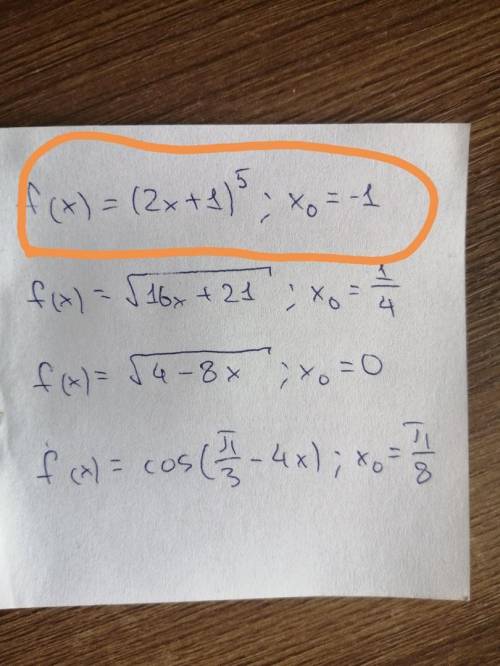 f(x) = (2x+1)^5 ; x₀ = -1
f(x) = √(16x + 21) ; x₀ = 1/4
f(x) = √(4 - 8x) ; x₀ = 0
f(x) = cos(π/3 - 4x) ; x₀ = π/8